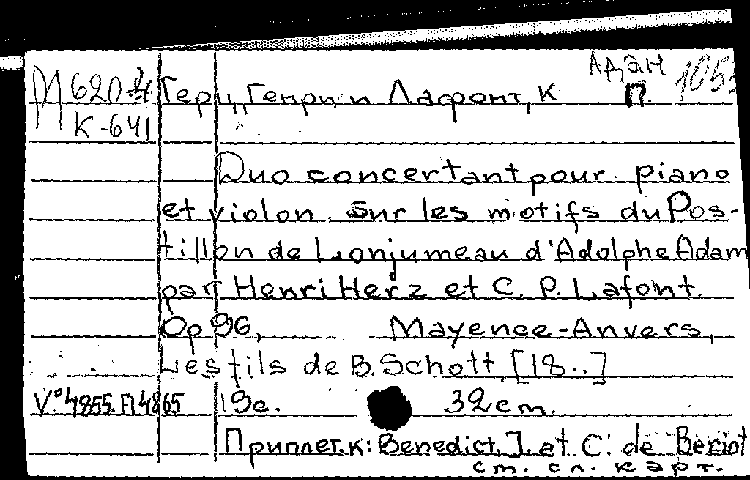 Адан
М620-4 Герц, Генри и Лафонт, К П. 105
К-641
Duo concertant pour piano
et violon sur les motifs du Pos-
tillon de Lonjumeau d'Adolphe Adam
par Henri Herz et C. P. Lafont.
Op 96, Mayence-Anvers,
Les fils de B. Schott [18..]
V.º 4855. Fl 4865 19c. 32 cm.
Приплет. к: Benedict, J. et C. de Beriot
см. сл. карт.